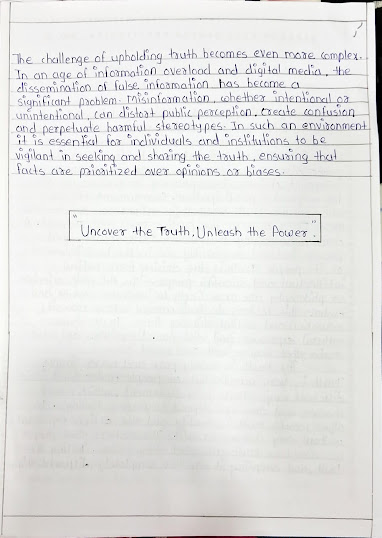 The challenge of upholding truth becomes even more complex.
In an age of information overload and digital media, the
dissemination of false information has become a
significant problem. Misinformation, whether intentional or
unintentional, can distort public perception, create confusion
and perpetuate harmful stereotypes. In such an environment
it is essential for individuals and institutions to be
vigilant in seeking and sharing the truth, ensuring that
facts are prioritized over opinions or biases.
"Uncover the Truth, Unleash the Power."